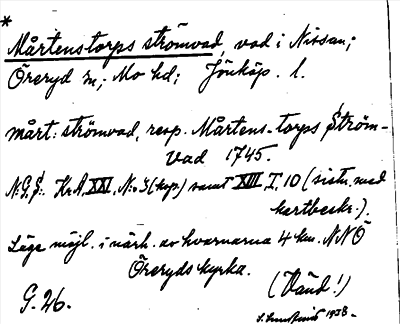 *
Mårtenstorps strömvad, vad i Nissan;
Öreryd sn; Mo hd; Jönköp. l.
mårt: strömvad, resp. Mårtens-torps Ström-
vad 1745.
N:o 3 (kop.) samt XIII I. 10 (sistn. med
kartbeskr.).
Läge möjl. i närh. av kvarnarna 4 km. NNÖ
Öreryds kyrka.
(Vänd!)
G. 26.
1938.